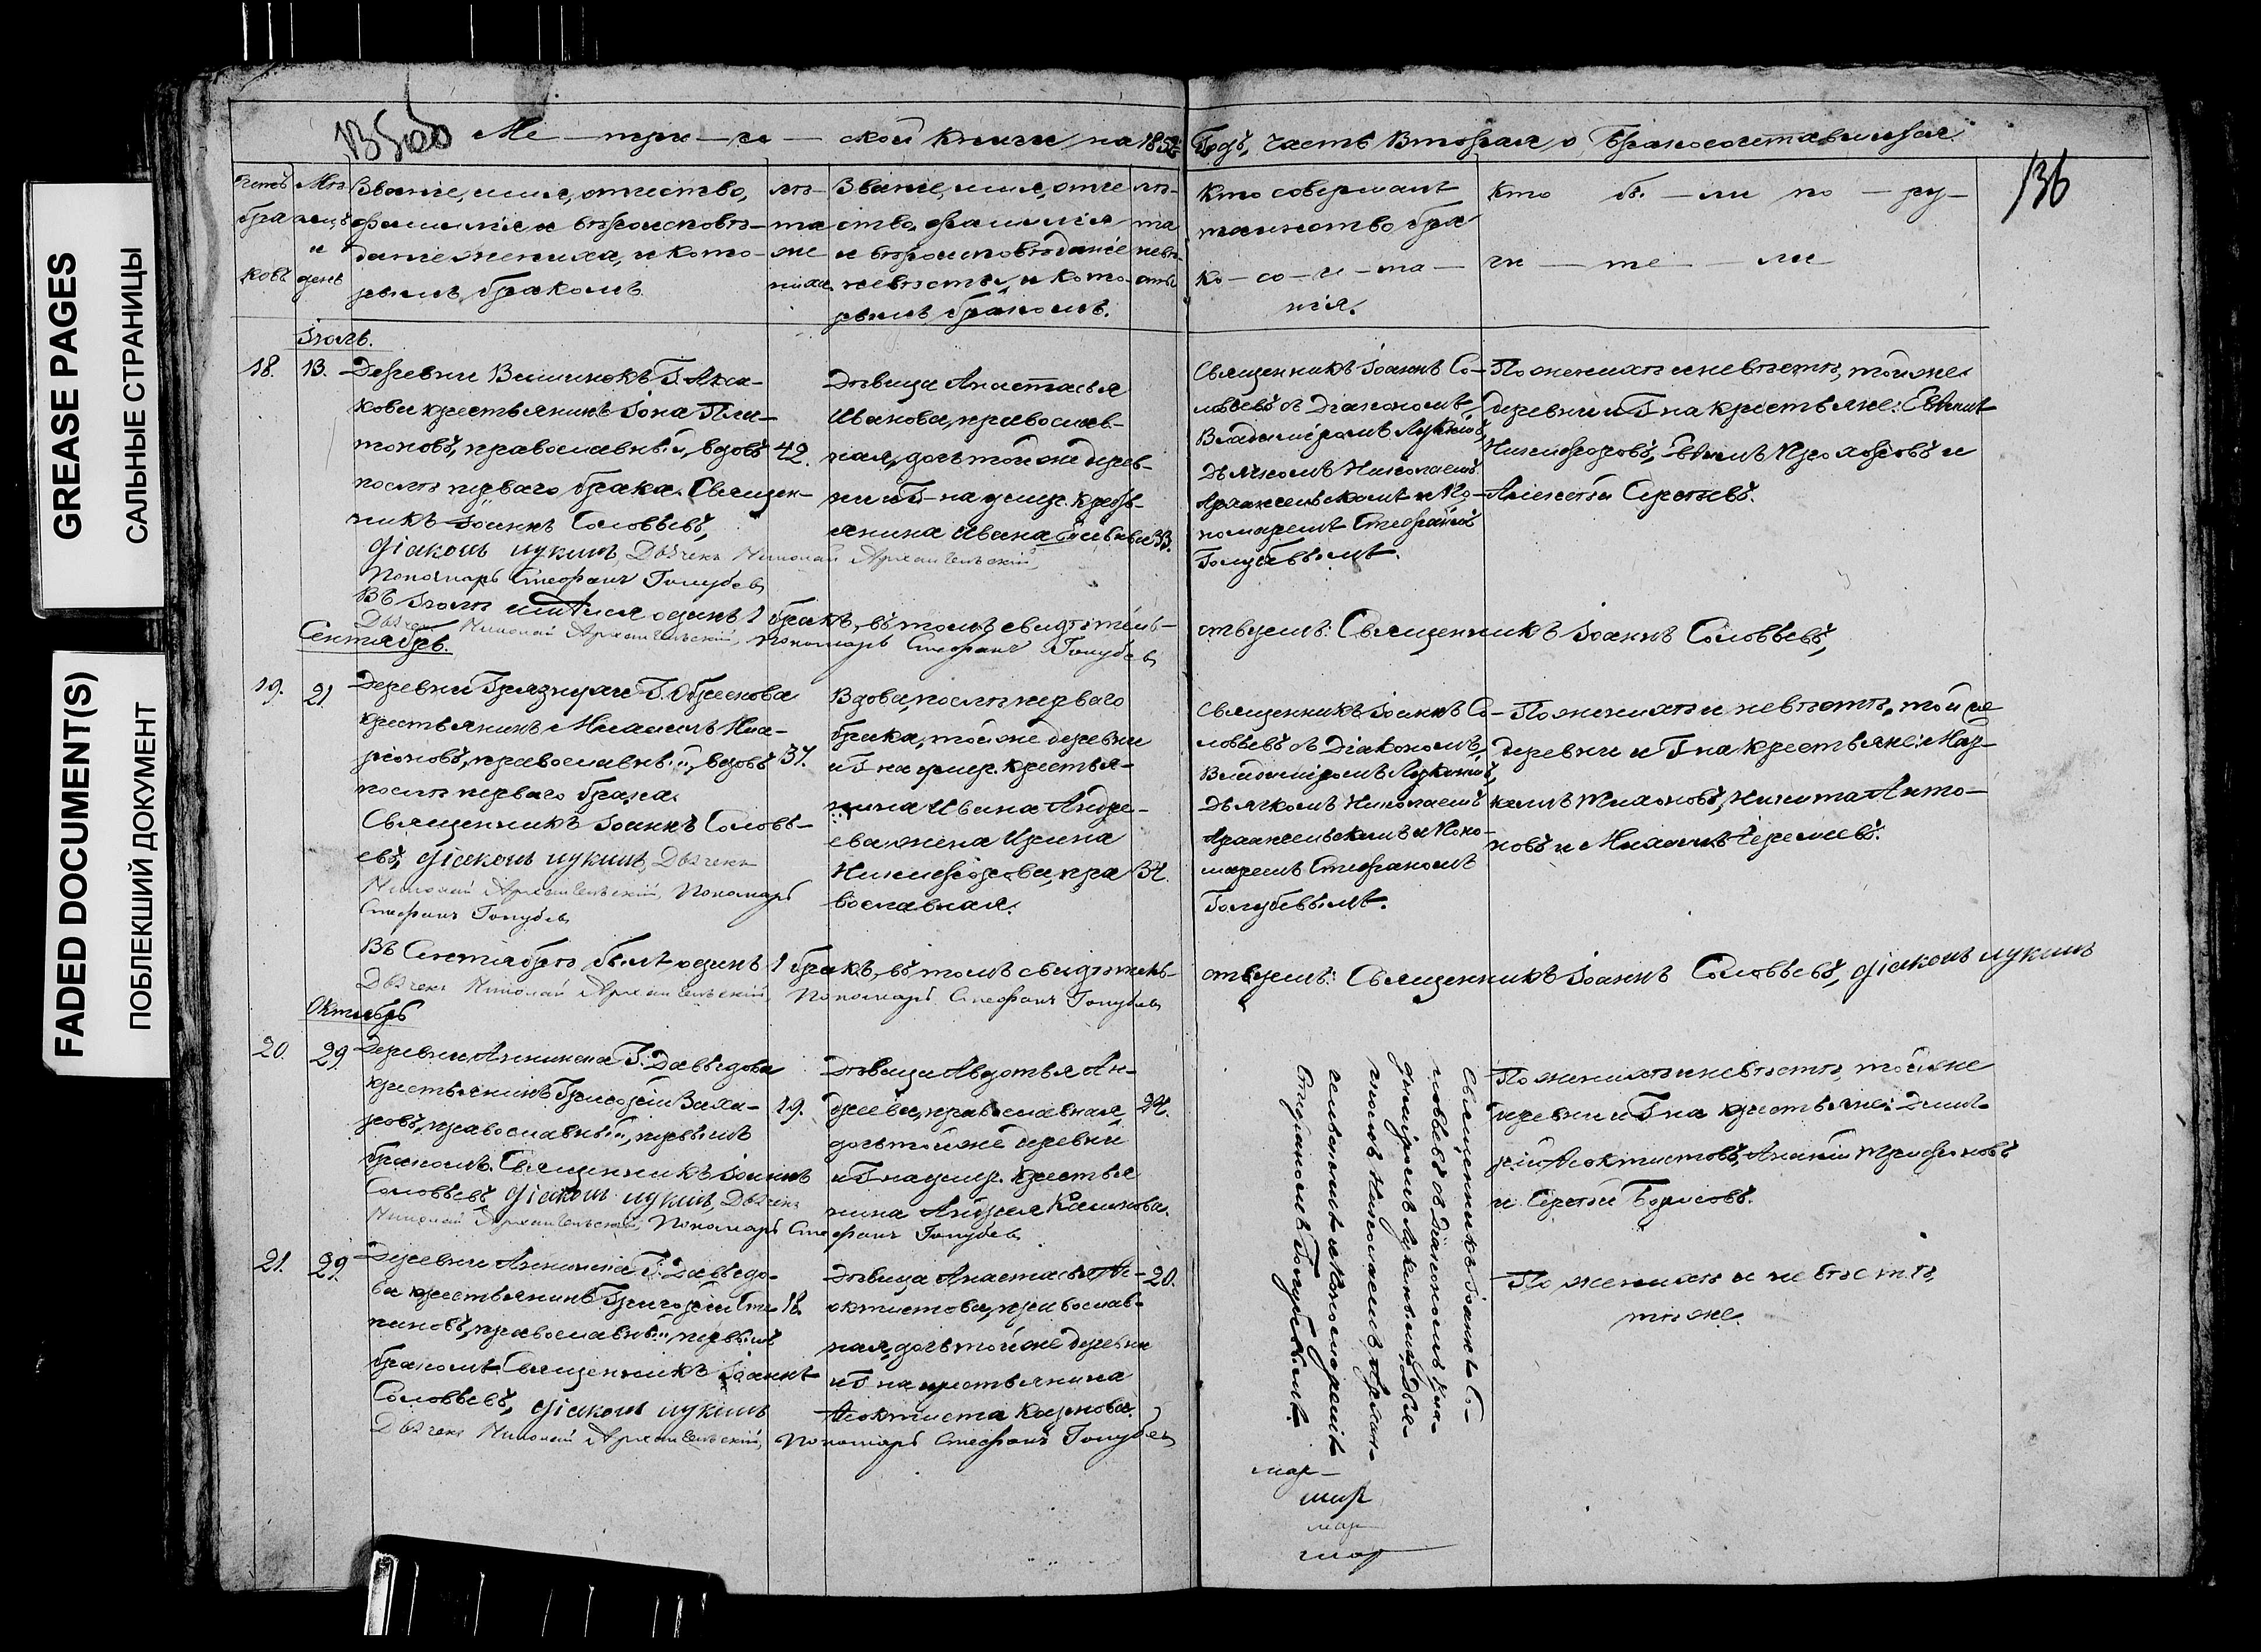 GREASE PAGES
САЛЬНЫЕ СТРАНИЦЫ
FADED DOCUMENT(S)
ПОБЛЕКШИЙ ДОКУМЕНТ
Ме-три-че-ской книги на 185 Годъ, часть Вторая о бракосочетавшихся
136
бра
ковъ
и
день
Званіе, имя, отчество,
фамилія и вѣроисповѣ-
даніе жениха, и кото-
рымъ бракомъ
лѣ-
та
же
ниха
Званіе, имя, отче
ство, фамилія
и вѣроисповѣданіе
невѣсты, и кото-
рымъ бракомъ.
лѣ-
та
невѣ-
сты
Кто совершалъ
таинство бра
ко-со-че-та-
нія.
Кто бы-ли по-ру-
чи-те-ли
Іюль.
18.
13.
Деревни Г. Акса-
кова крестьянинъ Іона Пла-
тоновъ, православный, вдовъ
послѣ перваго брака. Священ-
никъ Іоаннъ Соловьевъ,
діаконъ Лукинъ, Дьячекъ Николай Архангельскій,
Пономарь Стефанъ Голубев
42.
Дѣвица Анастасья
Иванова, православ-
ная, дочь той же дерев-
ни и Г-на умер. кресть-
янина Ивана
33.
Священникъ Іоаннъ Со-
ловьевъ съ Діакономъ
Владиміромъ Лукинымъ,
Дьячкомъ Николаемъ
Архангельскимъ и По-
номаремъ Стефаномъ
Голубевымъ.
По женихѣ и невѣстѣ, той же
деревни и Г-на крестьяне:
Никифоровъ, Прохоровъ и
Алексѣй Сергѣевъ.
Въ Іюлѣ одинъ 1 бракъ, въ томъ свидѣтель-
ствуемъ: Священникъ Іоаннъ Соловьевъ,
Дьячек Николай Архангельскій, Пономарь Стефанъ Голубев
Сентябрь.
19.
21.
Деревни Г. Обрескова
крестьянинъ Михаилъ Ила-
ріоновъ, православный, вдовъ
послѣ перваго брака.
Священникъ Іоаннъ Соловь-
евъ, діаконъ Лукинъ, Дьячекъ
Николай Архангельскій, Пономарь
Стефанъ Голубев
37.
Вдова, послѣ перваго
брака, той же деревни
и Г-на умер. крестья-
нина Ивана Андре-
ева жена Ирина
Никифорова, пра
вославная.
34.
Священникъ Іоаннъ Со-
ловьевъ съ Діакономъ,
Владиміромъ Лукинымъ,
Дьячкомъ Николаемъ
Архангельскимъ и Поно-
маремъ Стефаномъ
Голубевымъ.
По женихѣ и невѣстѣ, той же
деревни и Г-на крестьяне: Мар-
Тихоновъ, Никита Анто-
новъ и Михаилъ Еремеевъ.
Въ Сентябрѣ былъ одинъ 1 бракъ, въ томъ свидѣтель-
ствуемъ: Священникъ Іоаннъ Соловьевъ, діаконъ Лукинъ
Дьячекъ Николай Архангельскій, Пономарь Стефанъ Голубев
Октябрь
20.
29.
Деревни Аннина Г. Давыдова
крестьянинъ Григорій Заха-
ровъ, православный, первымъ
бракомъ. Священникъ Іоаннъ
Соловьевъ, діаконъ Лукинъ, Дьячекъ
Николай Архангельскій, Пономарь Стефанъ Голубев
19.
Дѣвица Авдотья Ан-
дреева, православная
дочь той же деревни
и Г-на умер. крестья
нина Андрея
24.
Священникъ Іоаннъ Со-
ловьевъ съ Діакономъ Вла-
диміромъ Лукинымъ, Дья-
чкомъ Николаемъ Архан-
гельскимъ и Пономаремъ
Стефаномъ Голубевымъ.
По женихѣ и невѣстѣ, той же
деревни и Г-на крестьяне: Дмит-
рій Ѳеоктистовъ, Ананій Трифоновъ
и Сергѣй Борисовъ.
21.
29.
Деревни Аннина Г. Давыдо-
ва крестьянинъ Григорій Сте-
пановъ, православный, первымъ
бракомъ. Священникъ Іоаннъ
Соловьевъ, діаконъ Лукинъ
Дьячекъ Николай Архангельскій, Пономарь Стефанъ Голубев
18.
Дѣвица Анастасья Ѳе-
октистова, православ-
ная, дочь той же деревни
и Г-на крестьянина
Ѳеоктиста Карпова.
20.
По женихѣ и невѣстѣ,
тѣ же.